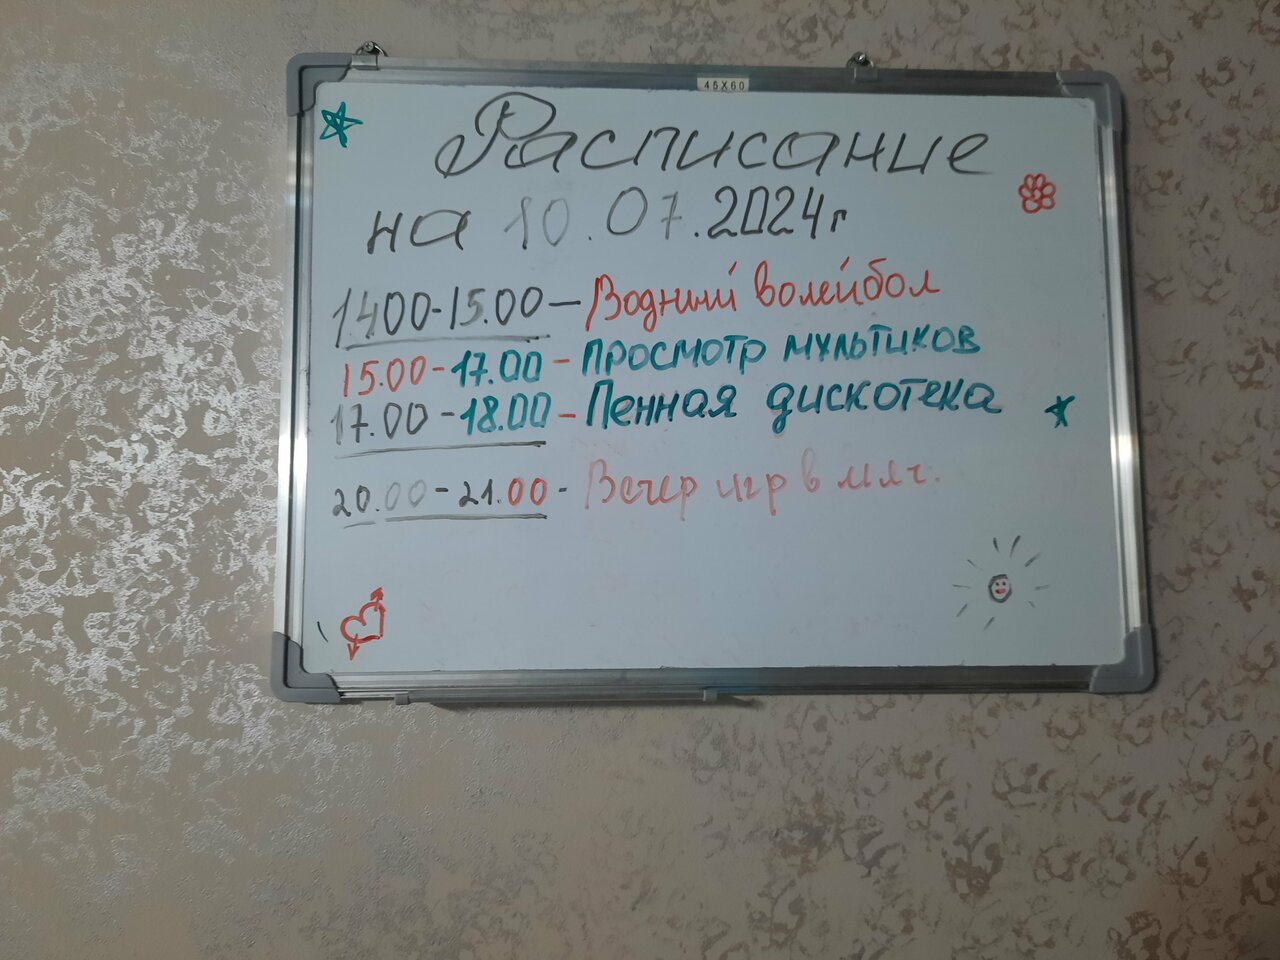 45X60
Расписание
на 10.07.2024г
14.00-15.00-Водный волейбол
15.00-17.00-просмотр мультиков
17.00-18.00-Пенная дискотека
20.00-21.00-Вечер игр в мяч.